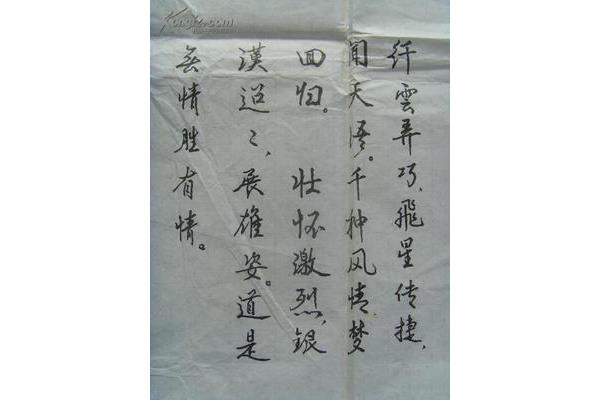 纤雲弄巧、飛星传捷、
闻天语。千种风情梦
回归。 壮怀激烈、銀
漢迢〻、展雄姿。道是
無情胜有情。